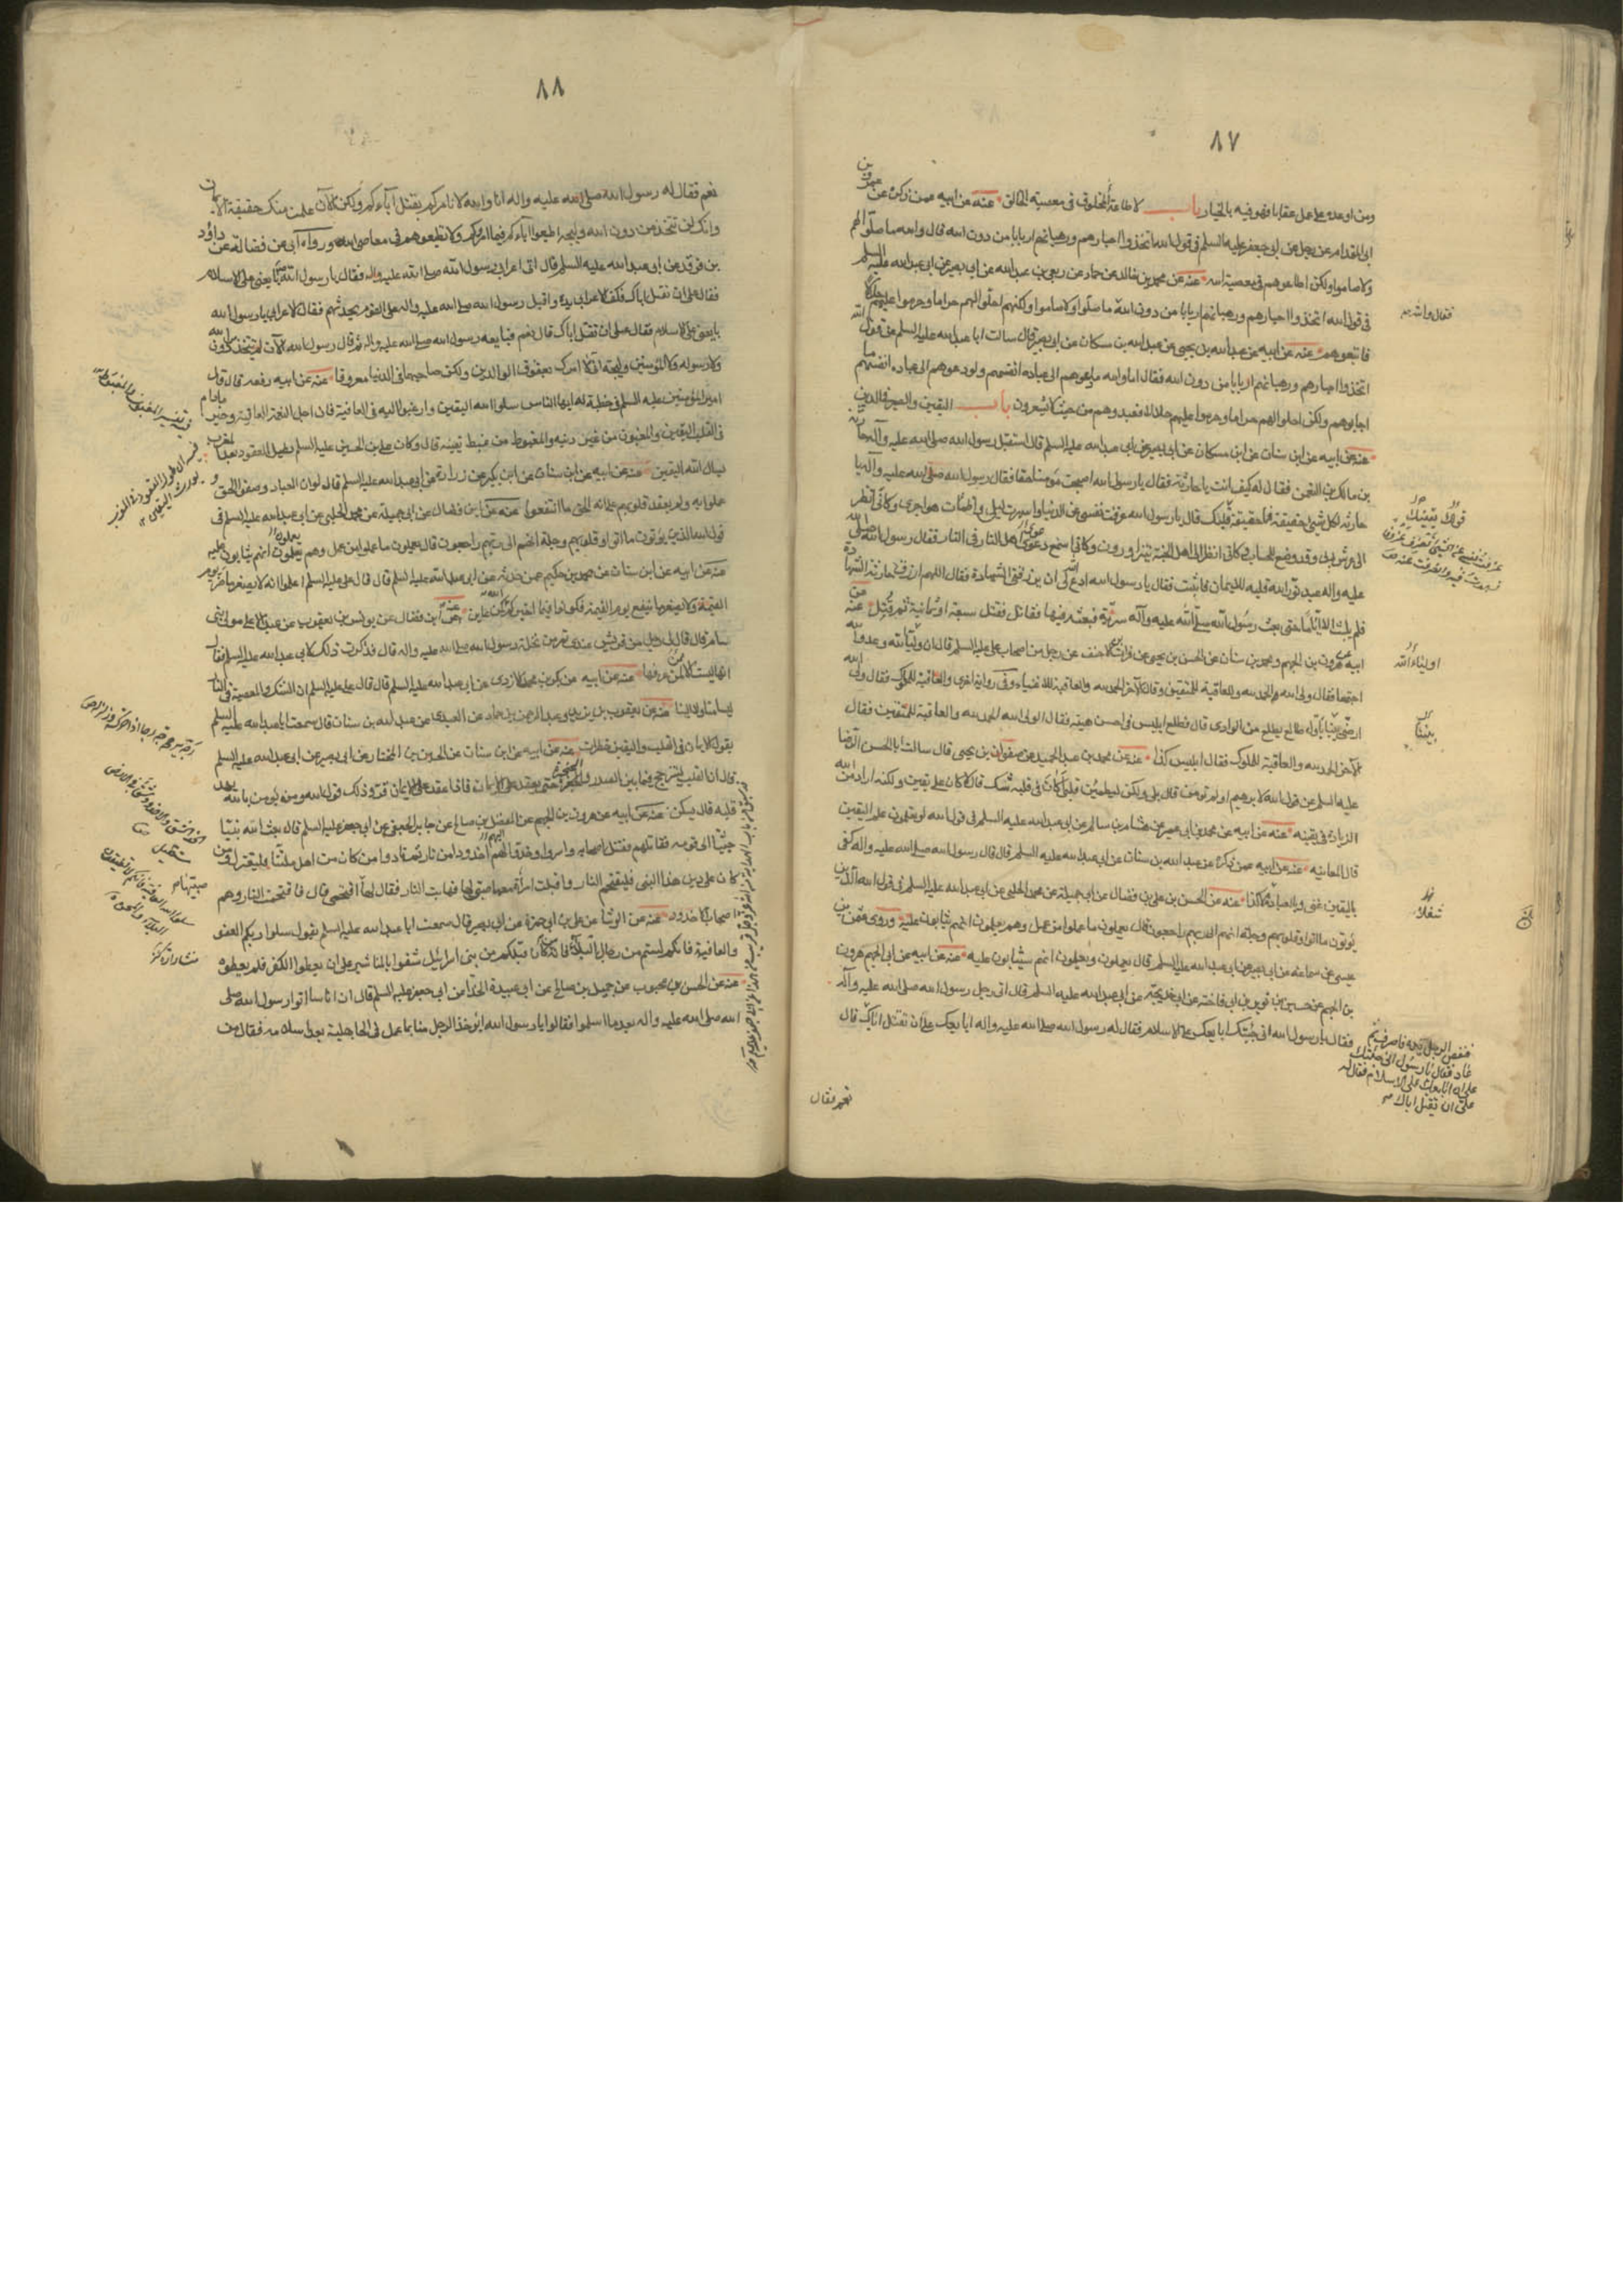 ٨٧
ومن اوعده على عمل عقابا فهو فيه بالخيار باب لا طاعة لمخلوق فى معصية الخالق عنه عن ابيه عمن ذكره عن عمرو بن
ابى المقدام عن رجل عن ابى جعفر عليه السلم فى قول الله اتخذوا احبارهم ورهبانهم اربابا من دون الله قال والله ما صلّوا لهم
ولا صاموا ولكن اطاعوهم فى معصية الله عنه عن محمد بن خالد عن حماد عن ربعى بن عبد الله عن ابى بصير عن ابى عبد الله عليه السلم
فى قول الله اتخذوا احبارهم ورهبانهم اربابا من دون الله ما صلّوا ولا صاموا ولكنهم احلّوا لهم حراما وحرموا عليهم حلالا
فاتبعوهم عنه عن ابيه عن عبد الله بن يحيى عن عبد الله بن مسكان عن ابى بصير قال سالت ابا عبد الله عليه السلم عن قول الله
اتخذوا احبارهم ورهبانهم اربابا من دون الله فقال اما والله ما دعوهم الى عبادة انفسهم ولو دعوهم الى عبادة انفسهم ما
اجابوهم ولكن احلوا لهم حراما وحرموا عليهم حلالا فعبدوهم من حيث لا يشعرون باب اليقين والصبر فى الدين
عنه عن ابيه عن ابن سنان عن ابن مسكان عن ابى بصير عن ابى عبد الله عليه السلم قال استقبل رسول الله صلى الله عليه وآله حارثة
بن مالك بن النعمن فقال له كيف انت يا حارثة فقال يا رسول الله اصبحت مؤمنا حقا فقال رسول الله صلى الله عليه وآله يا
حارثة لكل شئ حقيقة فما حقيقة قولك قال يا رسول الله عزفت نفسى عن الدنيا واسهرت ليلى واظمأت هواجرى وكانى انظر
الى عرش ربى وقد وضع للحساب وكانى انظر الى اهل الجنة يتزاورون وكانى اسمع عواء اهل النار فى النار فقال رسول الله صلى الله
عليه واله عبد نوّر الله قلبه للايمان فاثبت فقال يا رسول الله ادع الله لى ان يرزقنى الشهادة فقال اللهم ارزق حارثة الشهادة
فلم يلبث الا ايّاما حتى بعث رسول الله صلّى الله عليه وآله سريّة فبعثه فيها فقاتل فقتل سبعة او ثمانية ثم قُتل عنه عن
ابيه عن هرون بن الجهم ومحمد بن سنان عن الحسن بن يحيى عن فرات بن احنف عن رجل من اصحاب على عليه السلم قال ان وليّا لله وعدوّا لله
اجتمعا فقال ولى الله الحمد لله والعاقبة للمتقين وقال الآخر الحمد لله والعاقبة للاغنياء وفى رواية اخرى والعاقبة للملوك فقال ولى الله
ارضَ بيننا باول طالع يطلع من الوادى قال فطلع ابليس فى احسن هيئة فقال ولى الله الحمد لله والعاقبة للمتّقين فقال
الآخر الحمد لله والعاقبة للملوك فقال ابليس كذا عنه عن محمد بن عبد الحميد عن صفوان بن يحيى قال سالت ابا الحسن الرضا
عليه السلم عن قول الله لابرهيم اولم تؤمن قال بلى ولكن ليطمئن قلبى أكانَ فى قلبه شك قال لا كان على يقين ولكنه اراد من الله
الزيادة فى يقينه عنه عن ابيه عن محمد بن ابى عمير عن هشام بن سالم عن ابى عبد الله عليه السلم فى قول الله لو تعلمون علم اليقين
قال المعاينه عنه عن ابيه عمن ذكره عن عبد الله بن سنان عن ابى عبد الله عليه السلم قال قال رسول الله صلى الله عليه واله كفى
باليقين غنى وبالعبادة شغلا عنه عن الحسن بن على بن فضال عن ابى جميلة عن محمد الحلبى عن ابى عبد الله عليه السلم فى قول الله الذين
يؤتون ما اتوا وقلوبهم وجلة انهم الى ربهم راجعون قال يعملون ما عملوا من عمل وهم يعلمون انهم يثابون عليه وروى عثمن بن
عيسى عن سماعة عن ابى بصير عن ابى عبد الله عليه السلم قال يعملون ويعلمون انهم سيثابون عليه عنه عن ابيه عن ابى الجهم هرون
بن الجهم عن حسين بن ثوير بن ابى فاخته عن ابى خديجة عن ابى عبد الله عليه السلم قال اتى رجل رسول الله صلى الله عليه وآله
فقال يا رسول الله انى جئتك ابايعك على الاسلام فقال له رسول الله صلى الله عليه واله ابايعك على ان تقتل اباك قال
فقال والله
قولك يقينك
اولياء الله
بيننا
شغلا
فقبض الرجل يده فانصرف ثم
عاد فقال يا رسول الله انى جئتك
على ان ابايعك على الاسلام فقال له
على ان تقتل اباك
نعم فقال
٨٨
نعم فقال له رسول الله صلى الله عليه واله انا والله لا نامركم بقتل آباءكم ولكن الآن علمت منك حقيقة الايمان
وانك لن تتخذ من دون الله وليجة اطيعوا آباءكم فيما امروكم ولا تطيعوهم فى معاصى الله ورواه ابى عن فضالة عن داود
بن فرقد عن ابى عبد الله عليه السلم قال اتى اعرابى رسول الله صلى الله عليه واله فقال يا رسول الله بايعنى على الاسلام
فقال على ان تقتل اباك فكف الاعرابى يده واقبل رسول الله صلى الله عليه واله على القوم يحدثهم فقال الاعرابى يا رسول الله
بايعنى على الاسلام فقال على ان تقتل اباك قال نعم فبايعه رسول الله صلى الله عليه واله ثم قال رسول الله الآن لم تتخذ من دون الله
ولا رسوله ولا المؤمنين وليجة انى لا امرك بعقوق الوالدين ولكن صاحبهما فى الدنيا معروفا عنه عن ابيه رفعه قال قال
امير المؤمنين عليه السلم فى خطبة له ايها الناس سلوا الله اليقين وارغبوا اليه فى العافية فان اجل النعمة العافية وخير ما دام
فى القلب اليقين والمغبون من غبن دينه والمغبوط من غبط يقينه قال وكان على بن الحسين عليه السلم يطيل القعود بعد المغرب
يسال الله اليقين عنه عن ابيه عن ابن سنان عن ابن بكير عن زرارة عن ابى عبد الله عليه السلم قال لو ان العباد وصفوا الحق و
عملوا به ولم يعقد قلوبهم على انه الحق ما انتفعوا عنه عن ابن فضال عن ابى جميلة عن محمد الحلبى عن ابى عبد الله عليه السلم فى
قول الله الذين يؤتون ما اتوا وقلوبهم وجلة انهم الى ربهم راجعون قال يعملون ما عملوا من عمل وهم يعلمون انهم يثابون عليه
عنه عن ابيه عن ابن سنان عن محمد بن حكيم عمن حدثه عن ابى عبد الله عليه السلم قال قال على عليه السلم اعلموا انه لا يصغر ما ضر يوم
القيمة ولا يصغر ما ينفع يوم القيمة فكونوا فيما اخبركم الله كمن عاين عنه عن ابن فضال عن يونس بن يعقوب عن عبد الاعلى مولى بنى
سام قال قال لى رجل من قريش عندى تمر من نخلة رسول الله صلى الله عليه واله قال فذكرت ذلك لابى عبد الله عليه السلم فقال
انها ليست الا لمن عرفها عنه عن ابيه عن بكر بن محمد الازدى عن ابى عبد الله عليه السلم قال قال على عليه السلم ان الشك والمعصية فى النار
ليسا منا ولا الينا عنه عن يعقوب بن يزيد وعبد الرحمن بن حماد عن العبدى عن عبد الله بن سنان قال سمعت ابا عبد الله عليه السلم
يقول الايمان فى القلب واليقين خطرات عنه عن ابيه عن ابن سنان عن الحسين بن المختار عن ابى بصير عن ابى عبد الله عليه السلم
قال ان القلب ليترجج فيما بين الصدر والحنجرة حتى يعقد على الايمان فاذا عقد على الايمان قر وذلك قول الله ومن يؤمن بالله يهد
قلبه قال يسكن عنه عن ابيه عن هرون بن الجهم عن المفضل بن صالح عن جابر الجعفى عن ابى جعفر عليه السلم قال بعث الله نبيّا
حبشيّا الى قومه فقاتلهم فقتل اصحابه واسروا وخدّوا لهم اخدودا من نار ثم نادوا من كان من اهل ملتنا فليعتزل ومن
كان على دين هذا النبى فليقتحم النار فجعلوا واقبلت امراة معها صبى لها فهابت النار فقال لها اقتحمى قال فاقتحمت النار وهم
اصحاب الاخدود عنه عن الوشا عن على بن ابى حمزة عن ابى بصير قال سمعت ابا عبد الله عليه السلم يقول سلوا ربكم العفو
والعافية فانكم لستم من رجال البلاء فانه من كان قبلكم من بنى اسرائيل شقوا بالمناشير على ان يعطوا الكفر فلم يعطوه
عنه عن الحسن بن محبوب عن جميل بن صالح عن ابى عبيدة الحذا عن ابى جعفر عليه السلم قال ان اناسا اتوا رسول الله صلى
الله صلى الله عليه واله بعد ما اسلموا فقالوا يا رسول الله ايؤخذ الرجل منا بما عمل فى الجاهلية بعد اسلامه فقال من